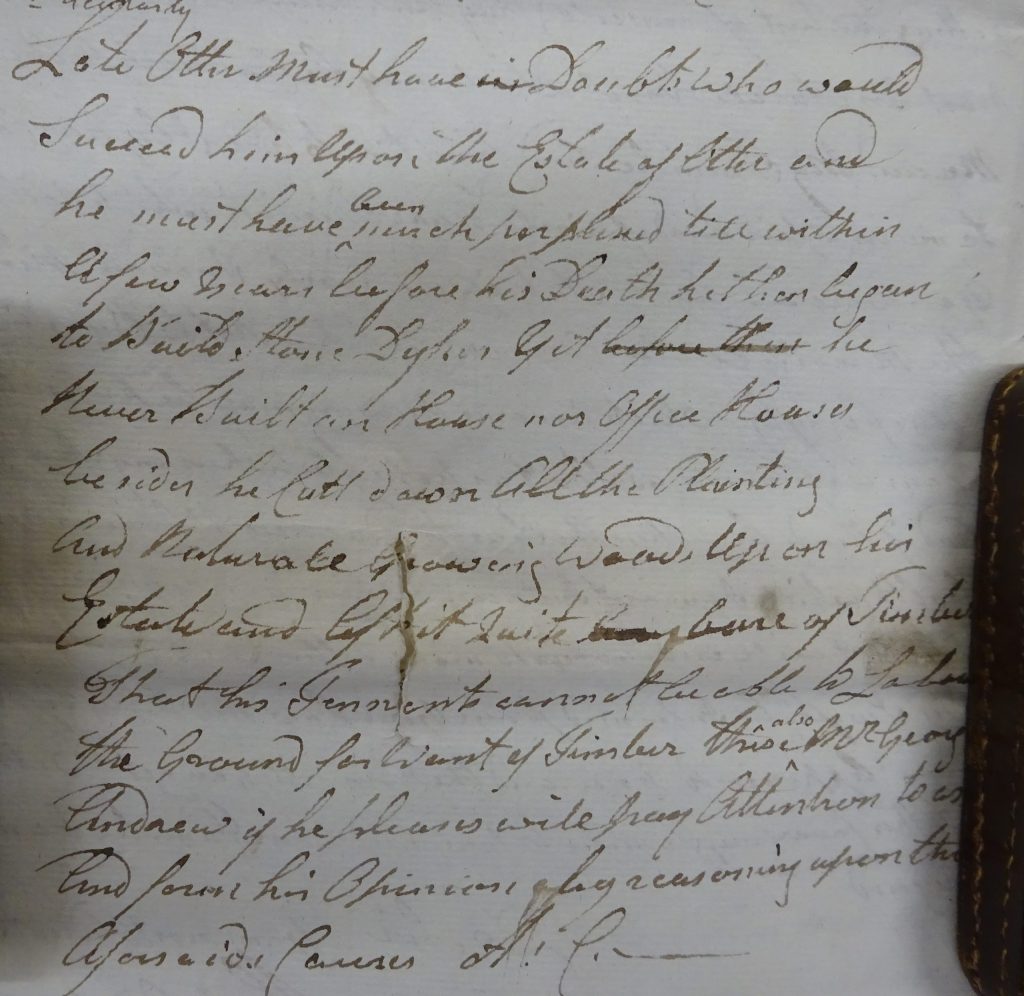 Late Otter Must have in Doubts who would
Succeed him Upon the Estate of Otter and
he must have been much perplexed till within
A few Years before his Death he then began
to Build Stone Dykes Yet before then he
Never Built an House nor Office Houses
besides he Cutt down All the Planting
And Naturale Growing Woods Upon his
Estate and left it Quite bare of Timber
That his Tennents cannot be able to Labou
the Ground for Want of Timber this also Mr Georg
Andrew if he pleases will pay Attention to as
And form his Opinion by reasoning upon the
Aforsaids Causes A: C.